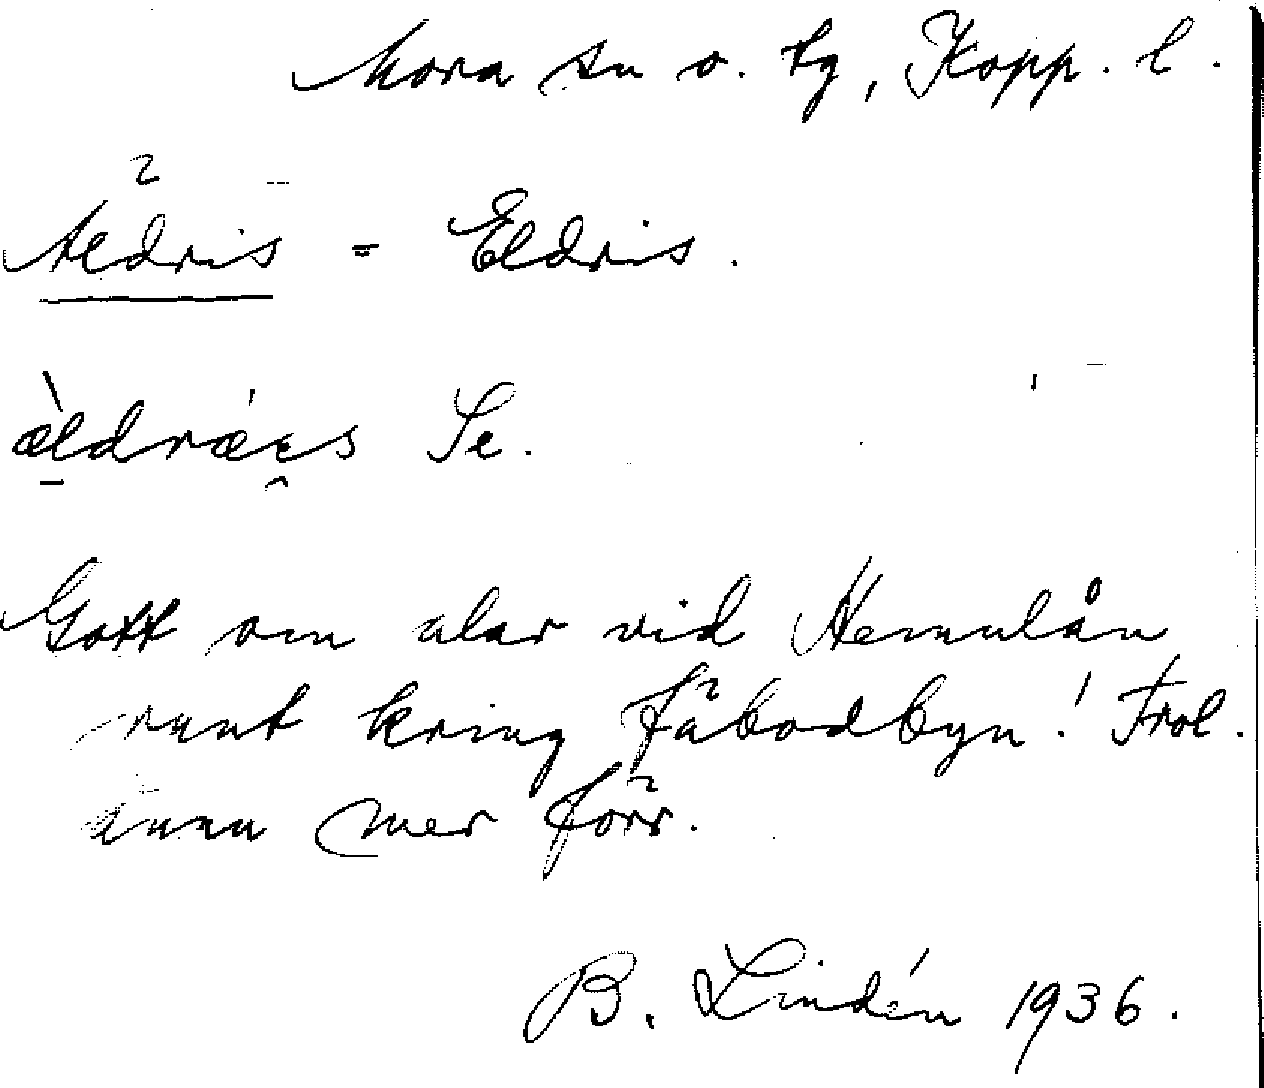 Mora sn o. tg, Kopp. l.
Äldris = Eldris.
æ̀ldrǽe̯s Se.
Gott om alar vid Hemulån
runt kring fäbodbyn! Trol.
ännu mer förr.
B. Lindén 1936.